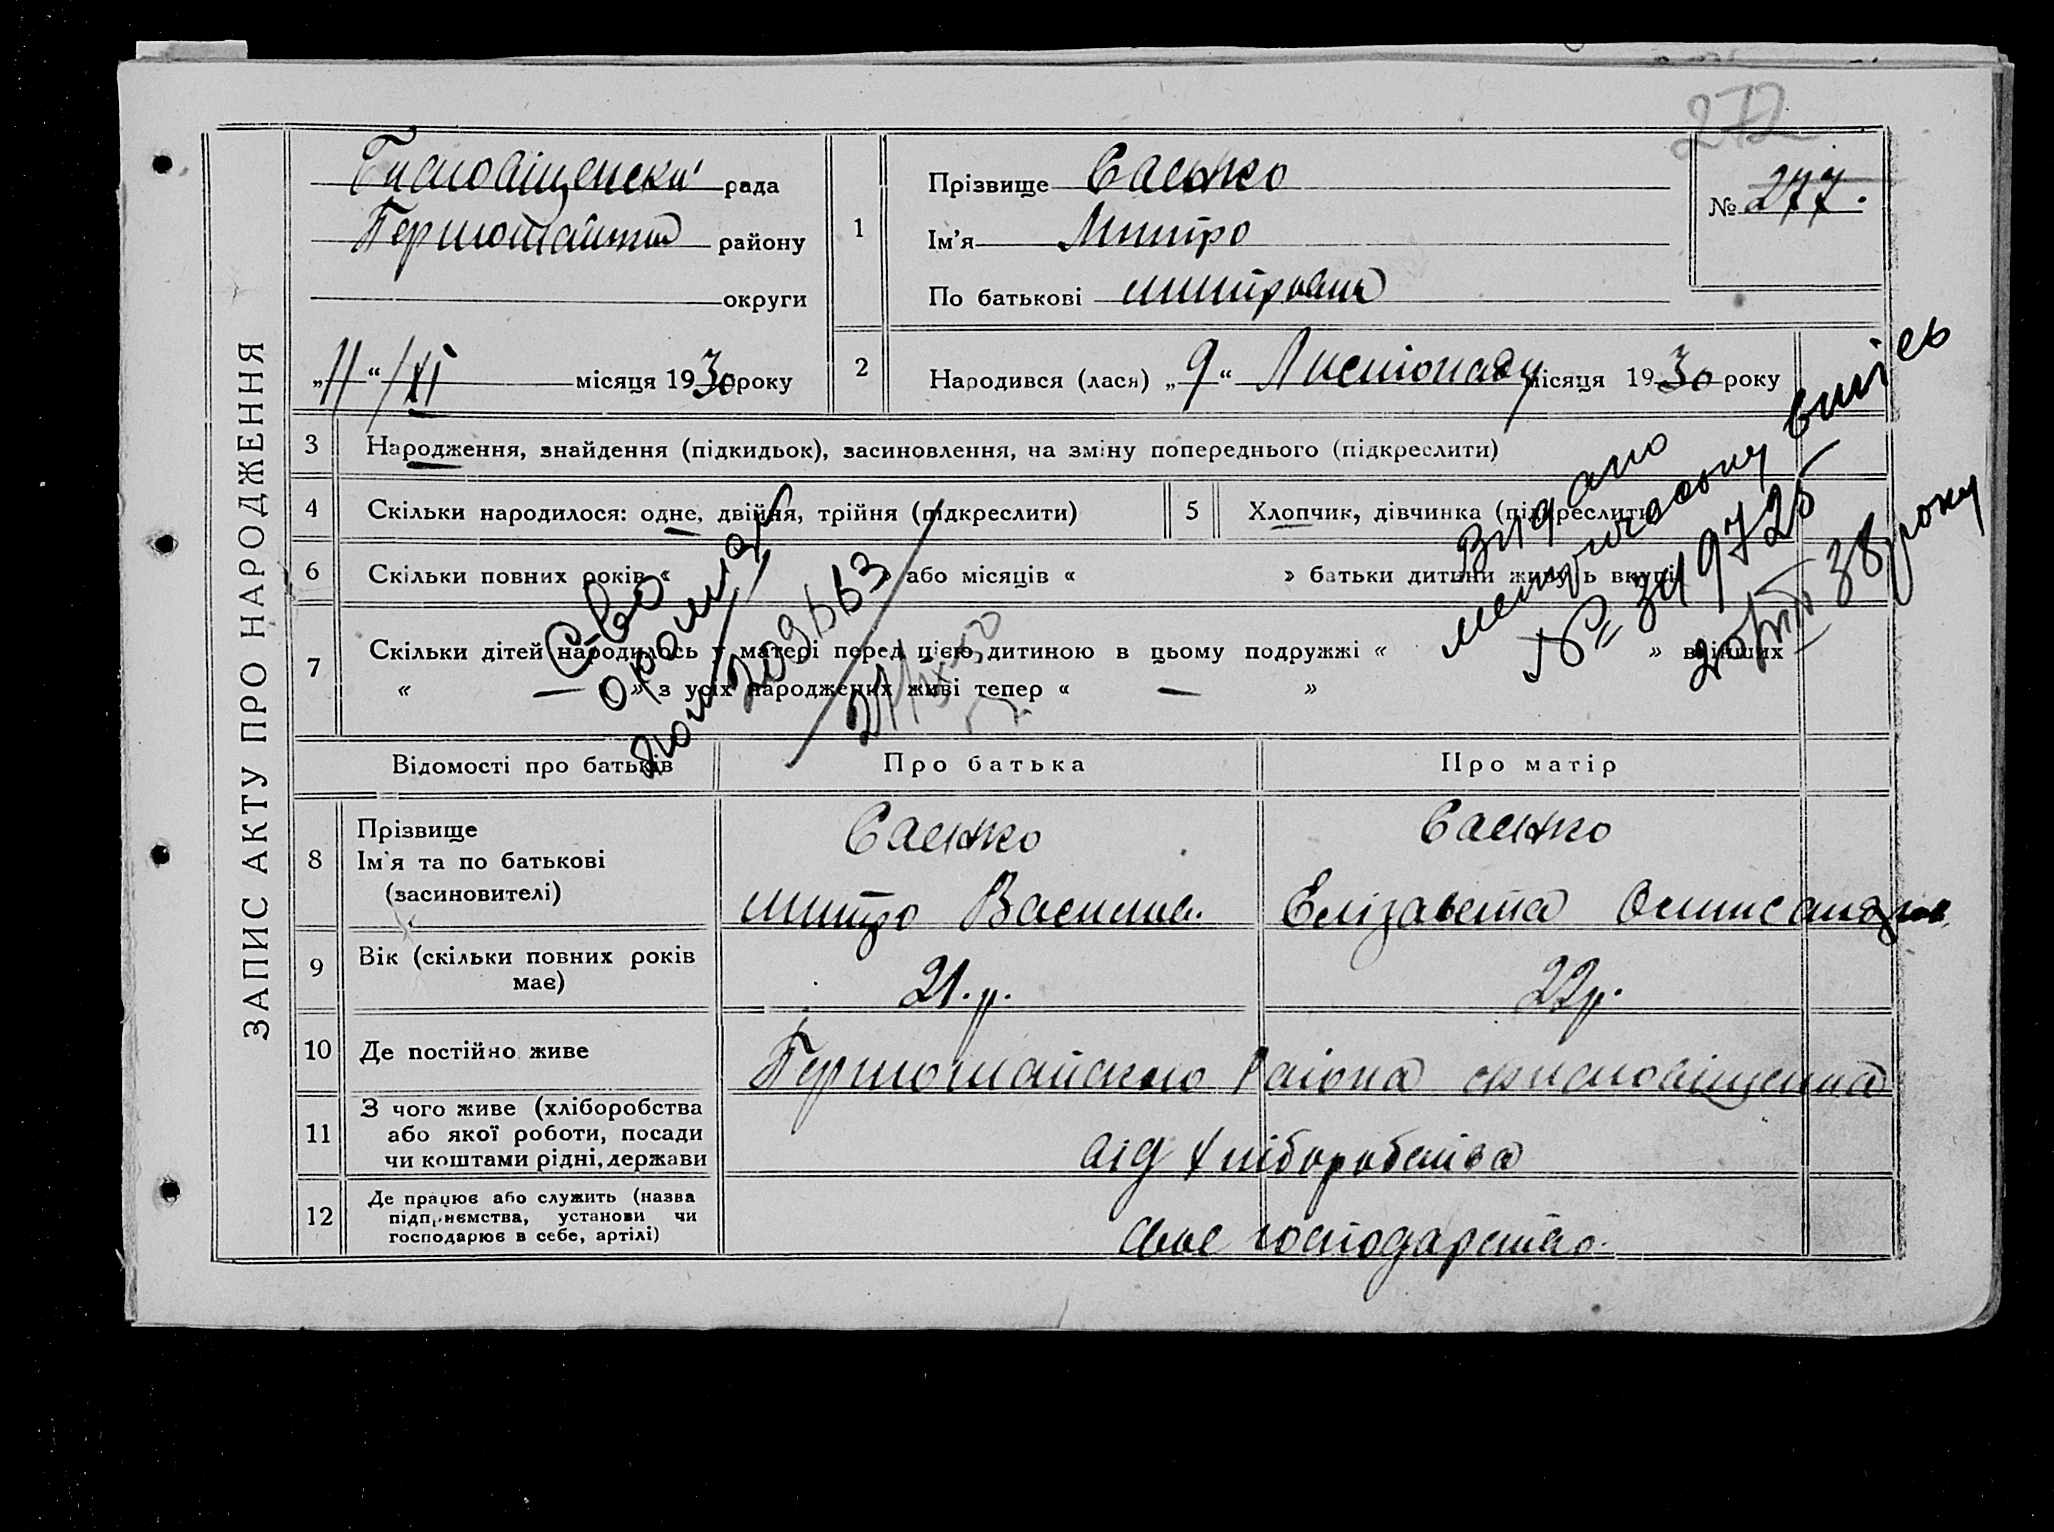 272
ЗАПИС АКТУ ПРО НАРОДЖЕННЯ
рада
району
округи
„11“ /XI місяця 1930 року
1
Прізвище Саенко
Ім'я Митро
По батькові
№ 277.
2
Народився (лася) „9“ Листопаду місяця 1930 року
3 Народження, знайдення (підкидьок), засиновлення, на зміну попереднього (підкреслити)
4 Скільки народилося: одне, двійня, трійня (підкреслити)
5 Хлопчик, дівчинка (підкреслити)
6 Скільки повних років « » або місяців « » батьки дитини живуть вкупі
7 Скільки дітей народилось у матері перед цією дитиною в цьому подружжі « » в інших
« — » з усіх народжених живі тепер « — »
С-во
209663
Видано
метричесную випісь
№ 349725
38 року
Відомості про батьків
Про батька
Про матір
8 Прізвище
Ім'я та по батькові
(засиновителі)
Саенко
Митро Василів.
Саенко
Елізавета
9 Вік (скільки повних років
має)
21. р.
22 р.
10 Де постійно живе
Першомайского Району
11 З чого живе (хліборобства
або якої роботи, посади
чи коштами рідні, держави
від хліборобства
12 Де працює або служить (назва
підприємства, установи чи
господарює в себе, артілі)
свое господарство.